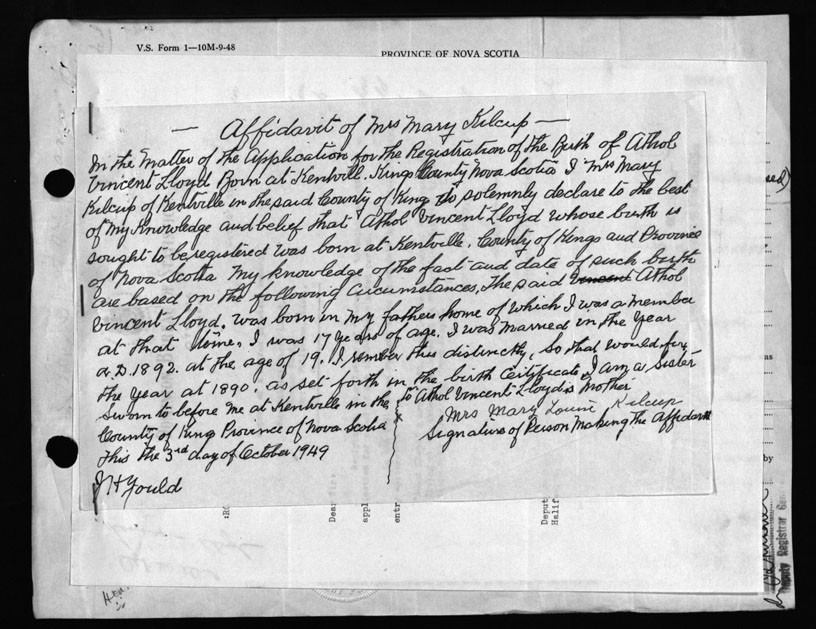 V.S. Form 1—10M-9-48
PROVINCE OF NOVA SCOTIA
— Affidavit of Mrs Mary Kilcup —
In the Matter of the Application for the Registration of the Birth of Athol
Vincent Lloyd Born at Kentville. Kings County Nova Scotia I Mrs Mary
Kilcup of Kentville in the said County of King do solemnly declare to the best
of my Knowledge and belief that Athol Vincent Lloyd whose birth is
sought to be registered was born at Kentville. County of Kings and Province
of Nova Scotia My knowledge of the fact and date of such birth
are based on the following Circumstances, The said Vincent Athol
Vincent Lloyd. was born in my fathers home of which I was a member
at that time. I was 17 years of age. I was married in the year
A.D. 1892. at the age of 19. I rember this distinctly, So that would fix
the year at 1890. as set forth in the birth Certificate, I am a sister
to Athol Vincent Lloyds Mother
Sworn to before me at Kentville in the
County of King Province of Nova Scotia
This the 3rd day of October 1949
J H Yould
Mrs Mary Louise Kilcup
Signature of Person Making The Affidavit
appl
entr
Deput
Halif
ed)
by
Deputy Registrar Gen